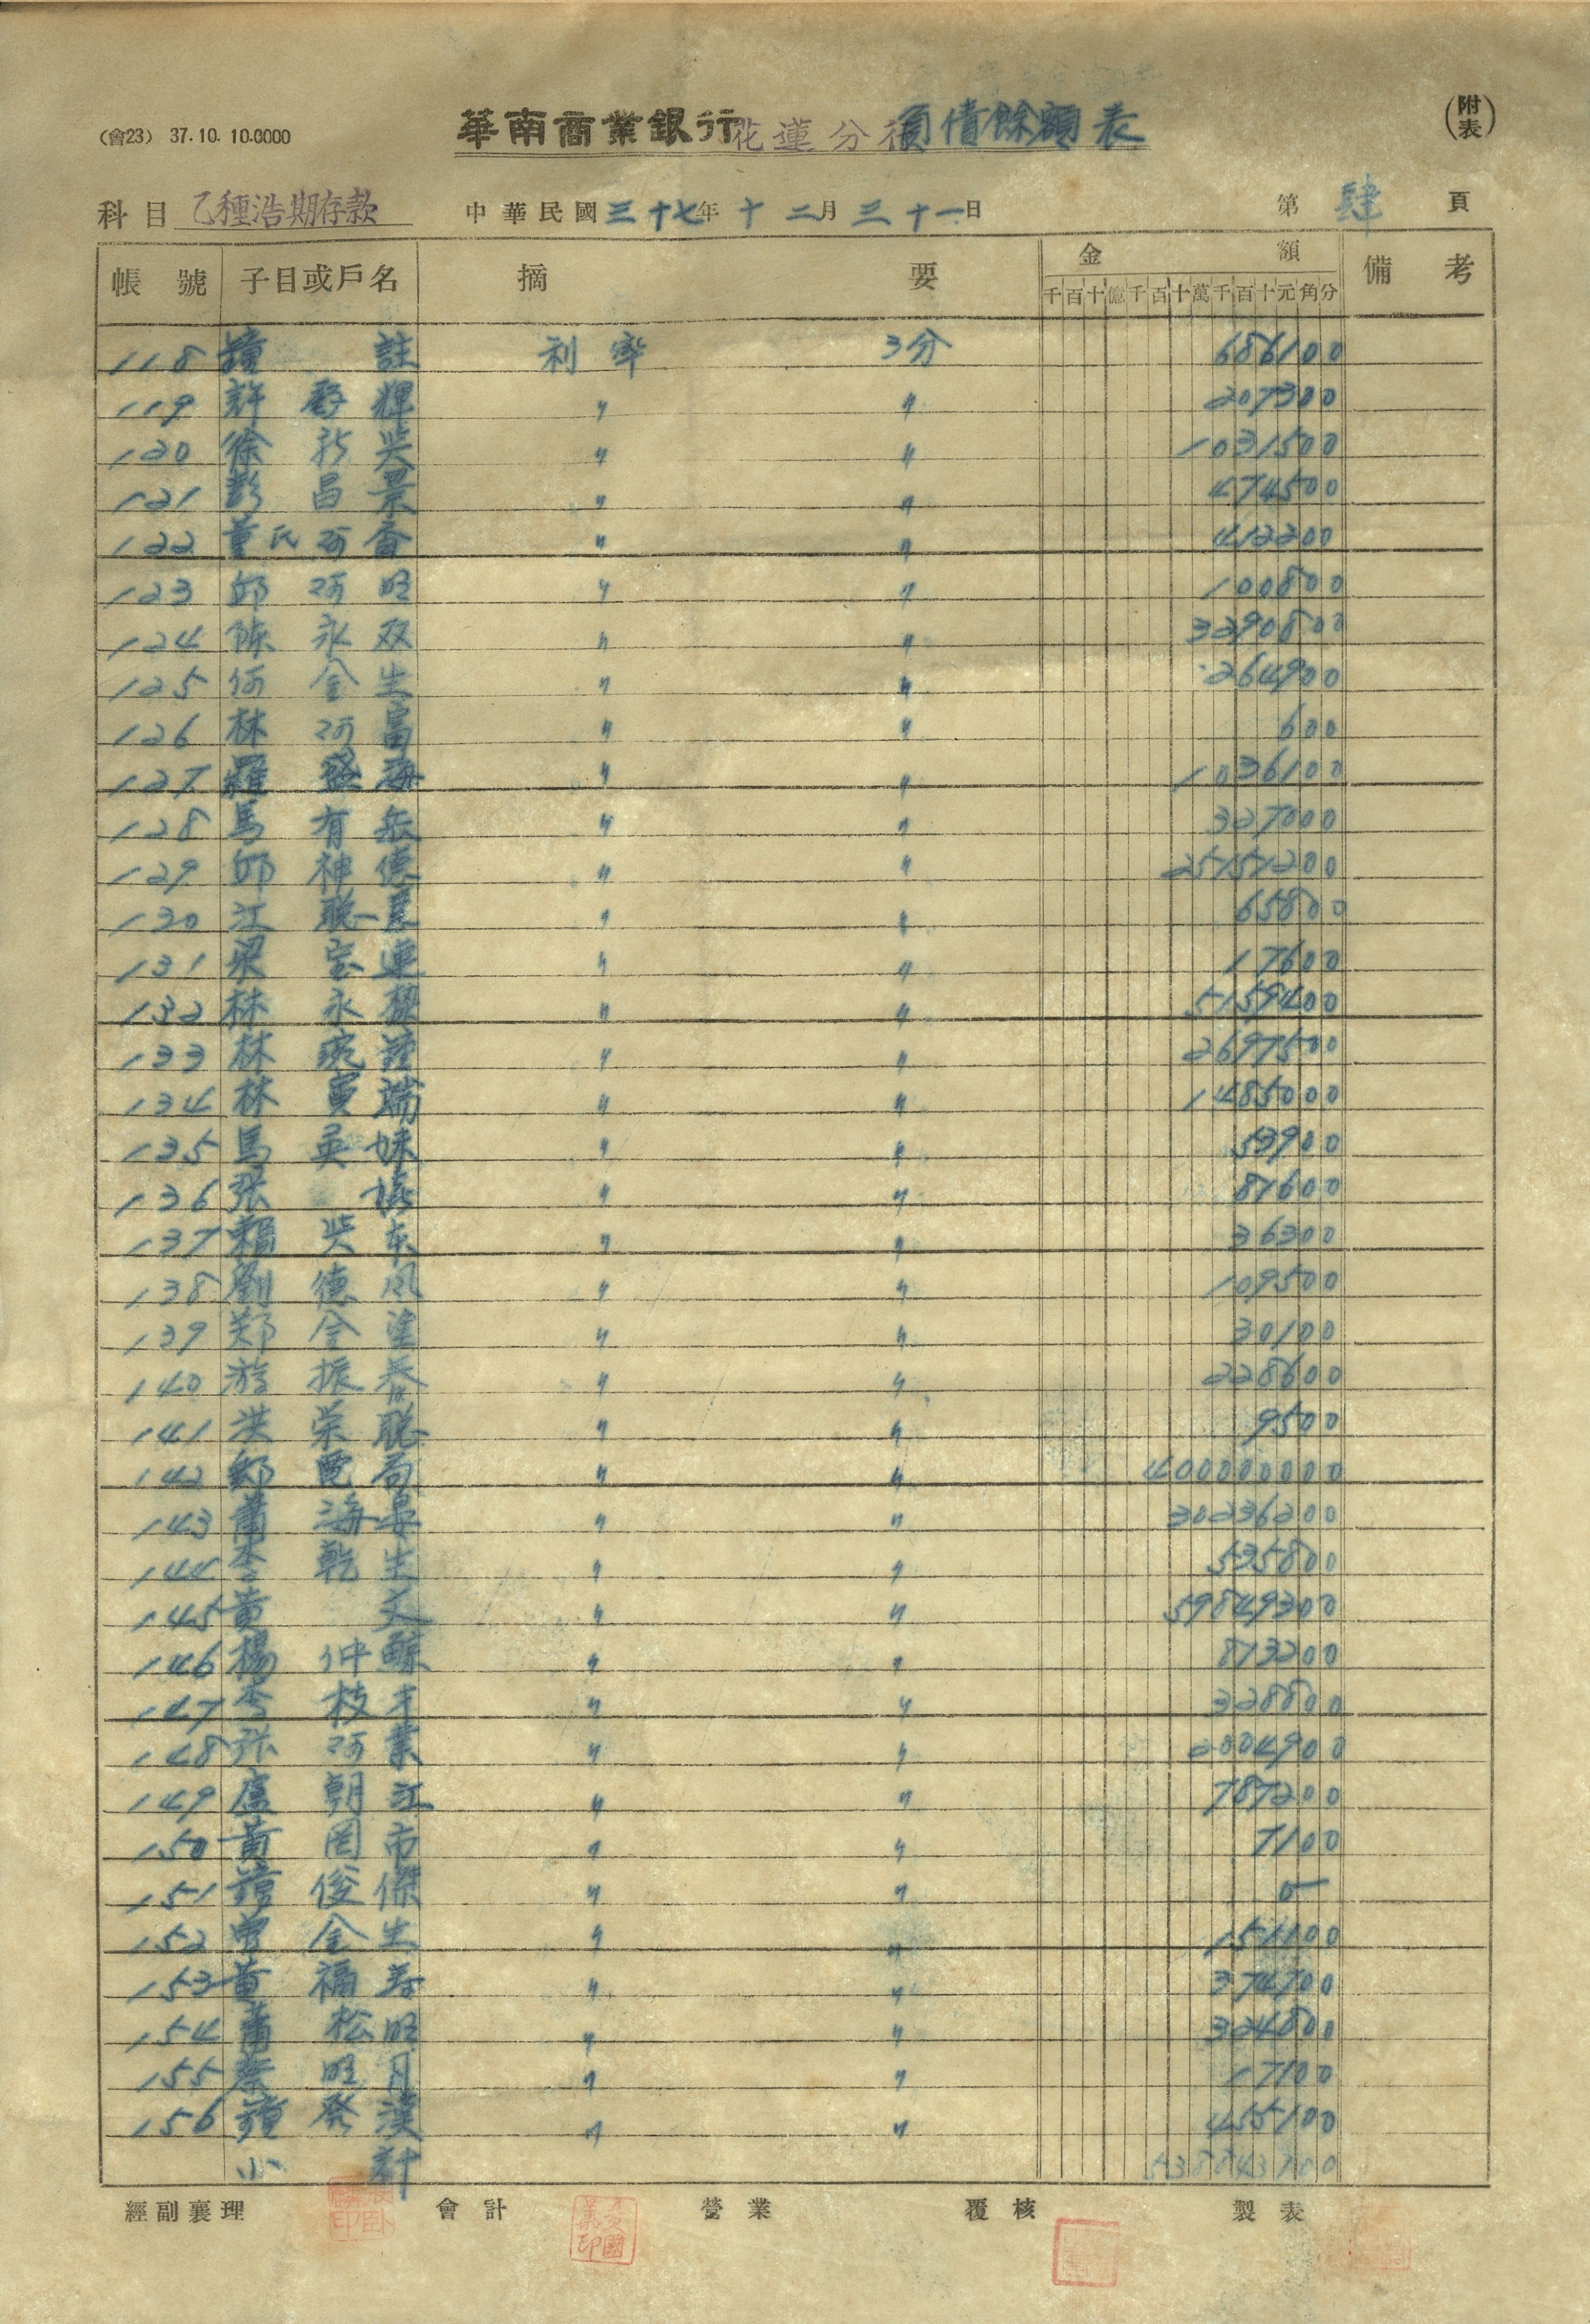 (會23) 37.10.10.0000
華南商業銀行花蓮分行負債餘額表
(附表)
科目 乙種活期存款 中華民國三十七年十二月三十一日 第肆頁
帳號 子目或戶名 摘要 金額 備考
千百十億千百十萬千百十元角分
118 鐘 註 利率 3分 686100
119 許 輝 〃 〃 207300
120 徐新 〃 〃 1031500
121 彭昌景 〃 〃 474500
122 董氏阿香 〃 〃 412200
123 邱阿旺 〃 〃 100800
124 陳永双 〃 〃 3390800
125 何金生 〃 〃 264900
126 林阿富 〃 〃 600
127 羅盛海 〃 〃 1036100
128 馬有岳 〃 〃 327000
129 邱神德 〃 〃 25151200
130 江聰 〃 〃 65800
131 梁宝連 〃 〃 17600
132 林永樑 〃 〃 5159400
133 林 〃 〃 2697500
134 林 瑞 〃 〃 1485000
135 馬英妹 〃 〃 53900
136 張 〃 〃 87600
137 賴 〃 〃 36300
138 劉德風 〃 〃 109500
139 郑金塗 〃 〃 30100
140 游振春 〃 〃 228600
141 洪荣聡 〃 〃 9500
142 郵電局 〃 〃 400000000
143 蕭海 〃 〃 30236200
144 李乾生 〃 〃 535800
145 黄 文 〃 〃 59849300
146 楊仲鯨 〃 〃 873200
147 李枝才 〃 〃 328800
148 張阿業 〃 〃 2004900
149 盧朝江 〃 〃 787200
150 黄罔市 〃 〃 7100
151 鐘俊傑 〃 〃 0
152 曾金生 〃 〃 151100
153 黄福寿 〃 〃 374700
154 蕭松旺 〃 〃 324800
155 蔡旺月 〃 〃 17100
156 鐘發漢 〃 〃 455100
小計 538843100
經副襄理 會計 營業 覆核 製表